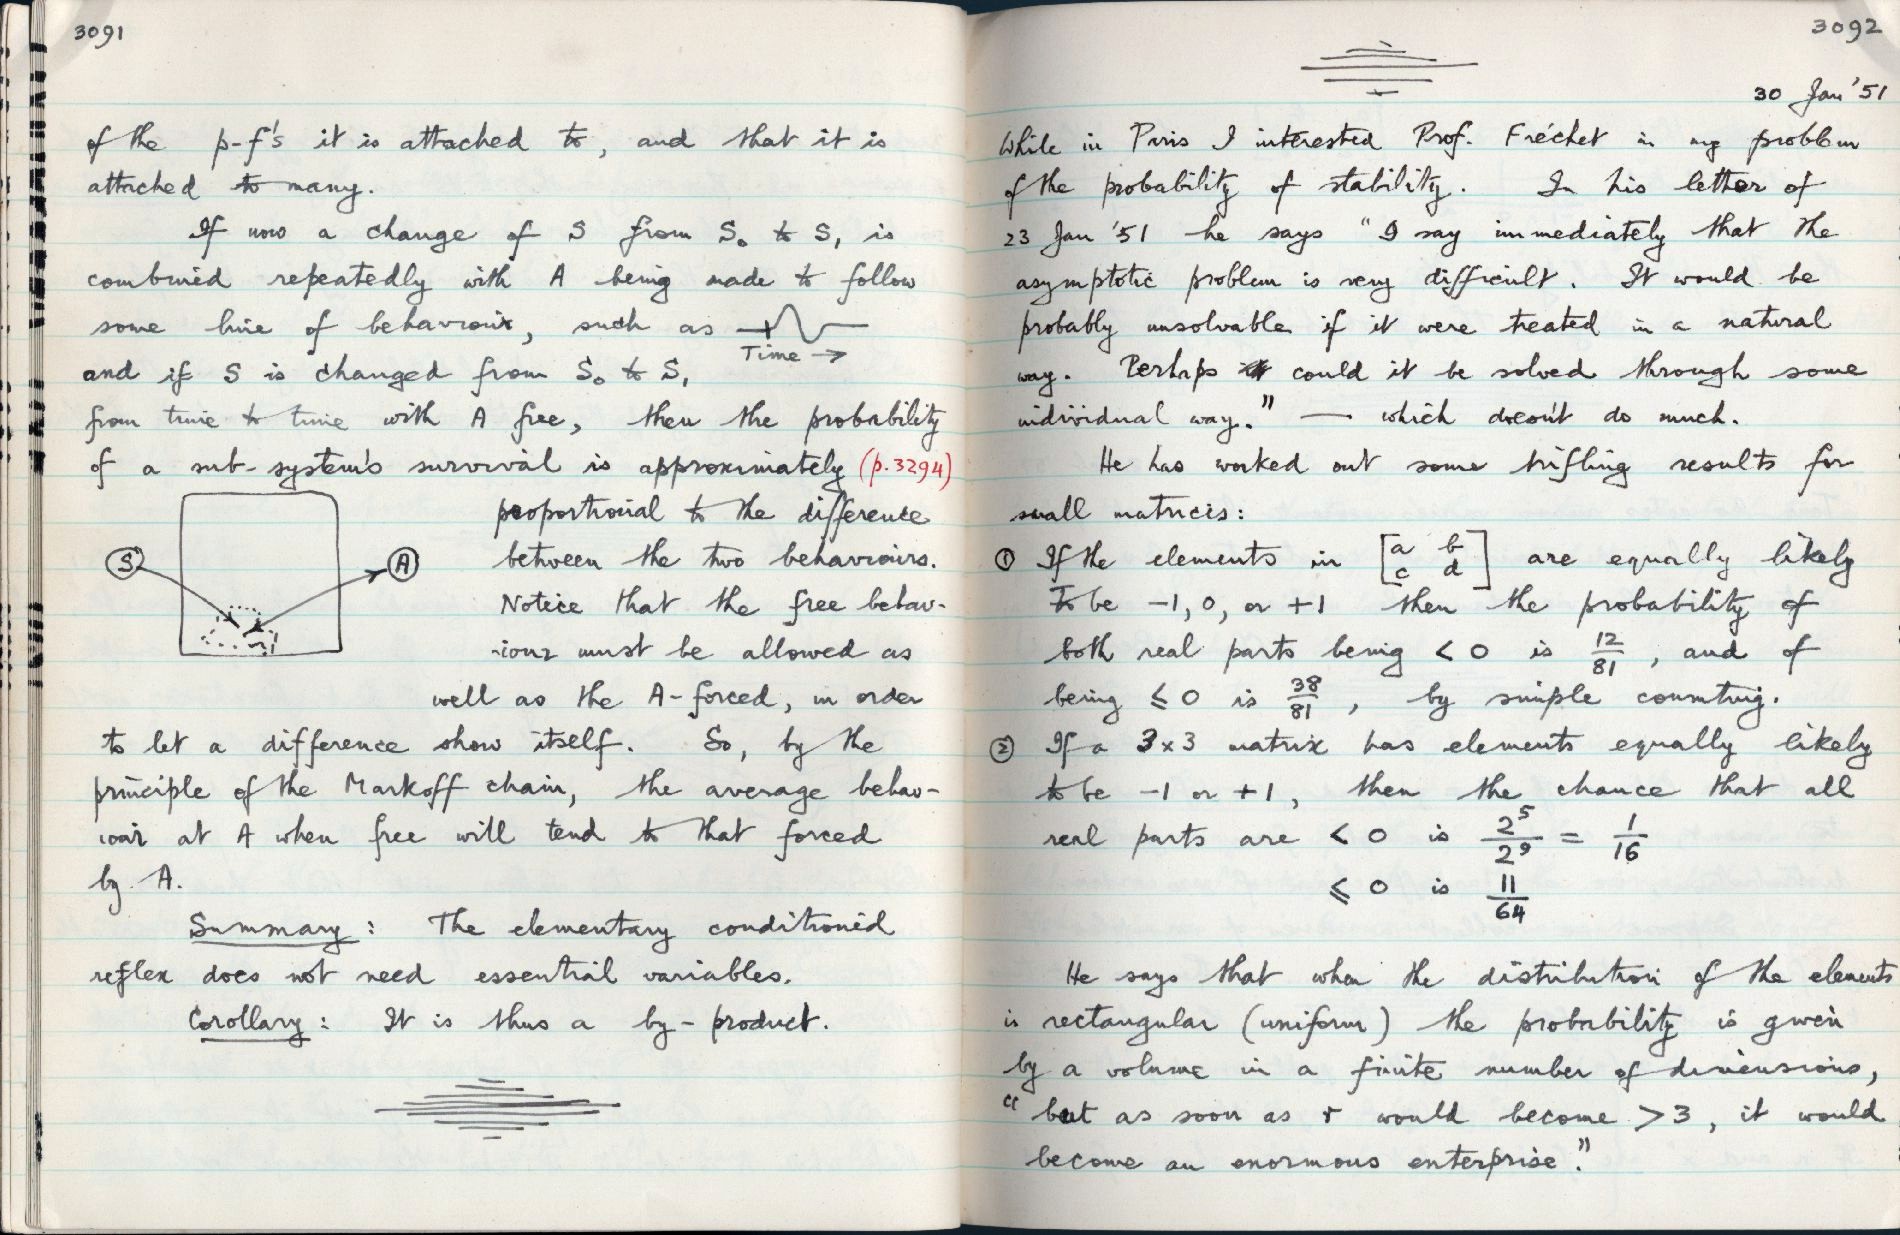 3091
of the p-f's it is attached to, and that it is
attached to many.
If now a change of S from S₀ to S₁ is
combined repeatedly with A being made to follow
some line of behaviour, such as
Time →
and if S is changed from S₀ to S₁
from time to time with A free, then the probability
of a sub-system's survival is approximately (p.3294)
proportional to the difference
S A
between the two behaviours.
Notice that the free behav-
iour must be allowed as
well as the A-forced, in order
to let a difference show itself. So, by the
principle of the Markoff chain, the average behav-
iour at A when free will tend to that forced
by A.
Summary: The elementary conditioned
reflex does not need essential variables.
Corollary: It is thus a by-product.
3092
30 Jan '51
While in Paris I interested Prof. Fréchet in my problem
of the probability of stability. In his letter of
23 Jan '51 he says "I say immediately that the
asymptotic problem is very difficult. It would be
probably unsolvable if it were treated in a natural
way. Perhaps could it be solved through some
individual way." — which doesn't do much.
He has worked out some trifling results for
small matrices:
① If the elements in [a b c d] are equally likely
to be -1, 0, or +1 then the probability of
both real parts being < 0 is 12/81, and of
being ≤ 0 is 38/81, by simple counting.
② If a 3×3 matrix has elements equally likely
to be -1 or +1, then the chance that all
real parts are < 0 is 2⁵/2⁹ = 1/16
≤ 0 is 11/64
He says that when the distribution of the elements
is rectangular (uniform) the probability is given
by a volume in a finite number of dimensions,
"but as soon as r would become > 3, it would
become an enormous enterprise."